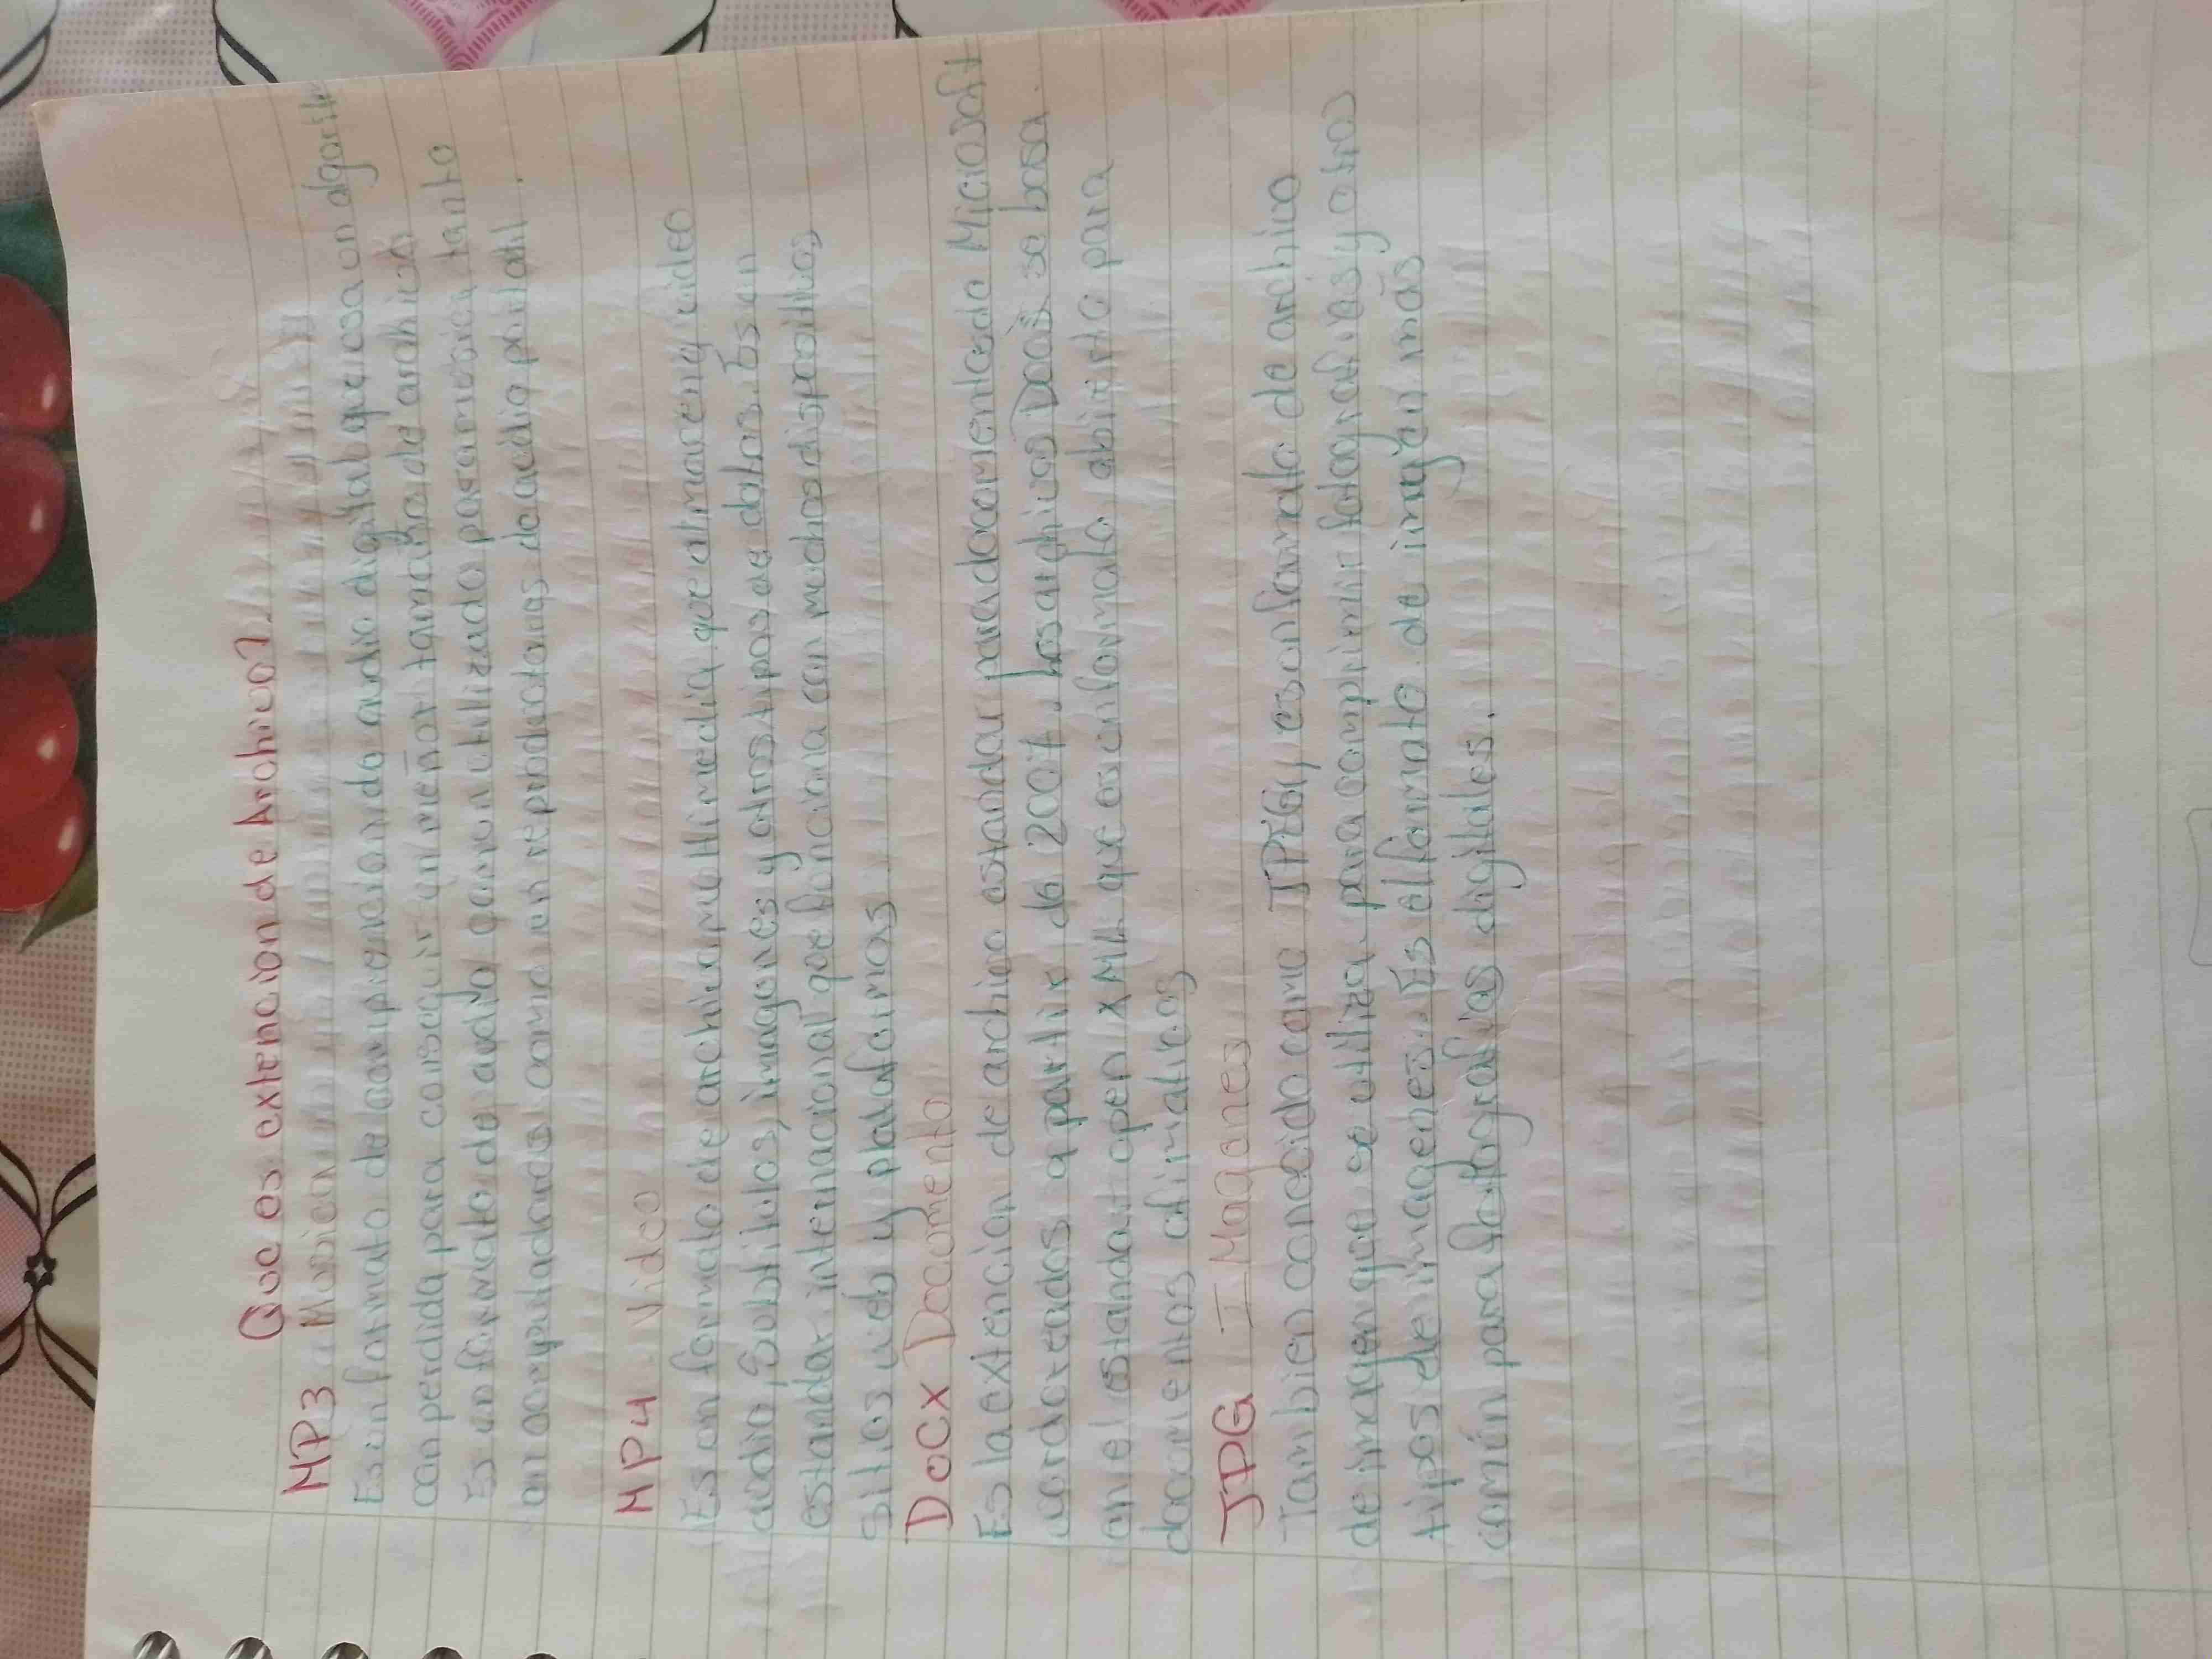 Que es extencion de Archivo?
MP3 Musica
Es un formato de compresion de audio digital que usa un algorit
con perdida para conseguir un meñor tamaño de archivo
Es un formato de audio comun utilizado para musica tanto
en computadoras como en reproductores de audio portatil.
MP4 Video
Es un formato de archivo multimedia que almacena video
audio, Subtitulos, imagenes y otros tipos de datos. Es un
estandar internacional que funciona con muchos dispositivos
Sitios web y plataformas
DocX Documento
Es la extencion de archivo estandar para documentos de Microsoft
word creados a partir de 2007. Los archivos Docx se basa
en el estandar open XML que es un formato abierto para
documentos ofimaticos
JPG IMagenes
Tambien conocido como JPEG, es un formato de archivo
de imagen que se utiliza para comprimir fotografias y otros
tipos de imagenes. Es el formato de imagen más
común para fotografias digitales.